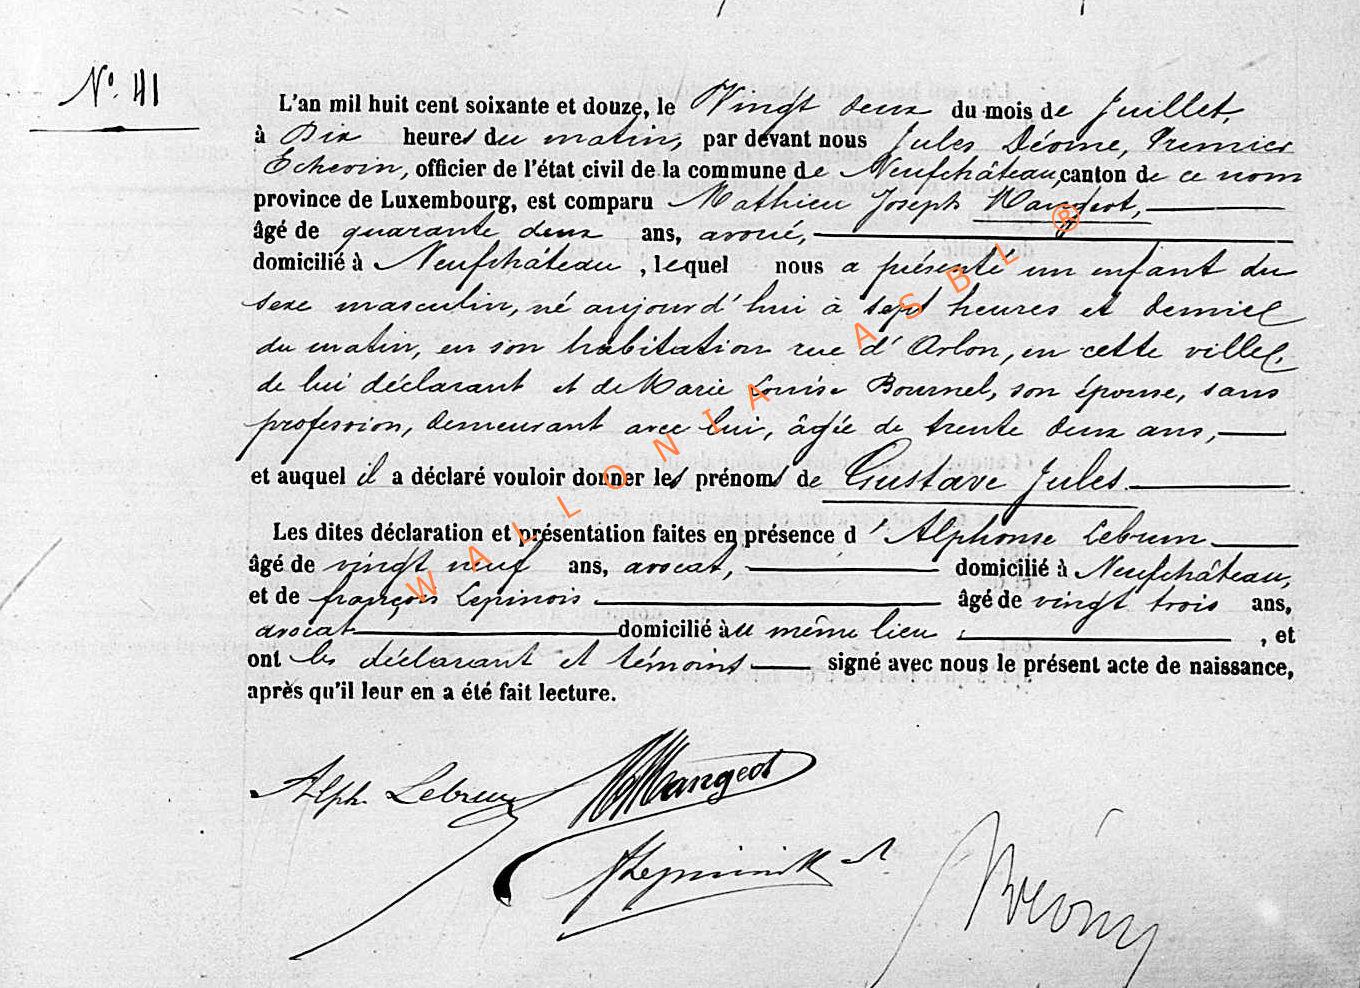 N° 41
L'an mil huit cent soixante et douze, le Vingt deux du mois de Juillet,
à Dix heures du matin, par devant nous Jules Dévine, Premier
Echevin, officier de l'état civil de la commune de Neufchâteau, canton de ce nom
province de Luxembourg, est comparu Mathieu Joseph Mangeot,
âgé de quarante deux ans, avoué,
domicilié à Neufchâteau, lequel nous a présenté un enfant du
sexe masculin, né aujourd'hui à sept heures et demie
du matin, en son habitation rue d'Arlon, en cette ville,
de lui déclarant et de Marie Louise Bournel, son épouse, sans
profession, demeurant avec lui, âgée de trente deux ans,
et auquel il a déclaré vouloir donner les prénoms de Gustave Jules.
Les dites déclaration et présentation faites en présence d'Alphonse Lebrun
âgé de vingt neuf ans, avocat, domicilié à Neufchâteau,
et de françois Lepinois âgé de vingt trois ans,
avocat domicilié au même lieu, et
ont les déclarant et témoins signé avec nous le présent acte de naissance,
après qu'il leur en a été fait lecture.
Alph. Lebrun Mangeot
WALLONIA ASBL ®